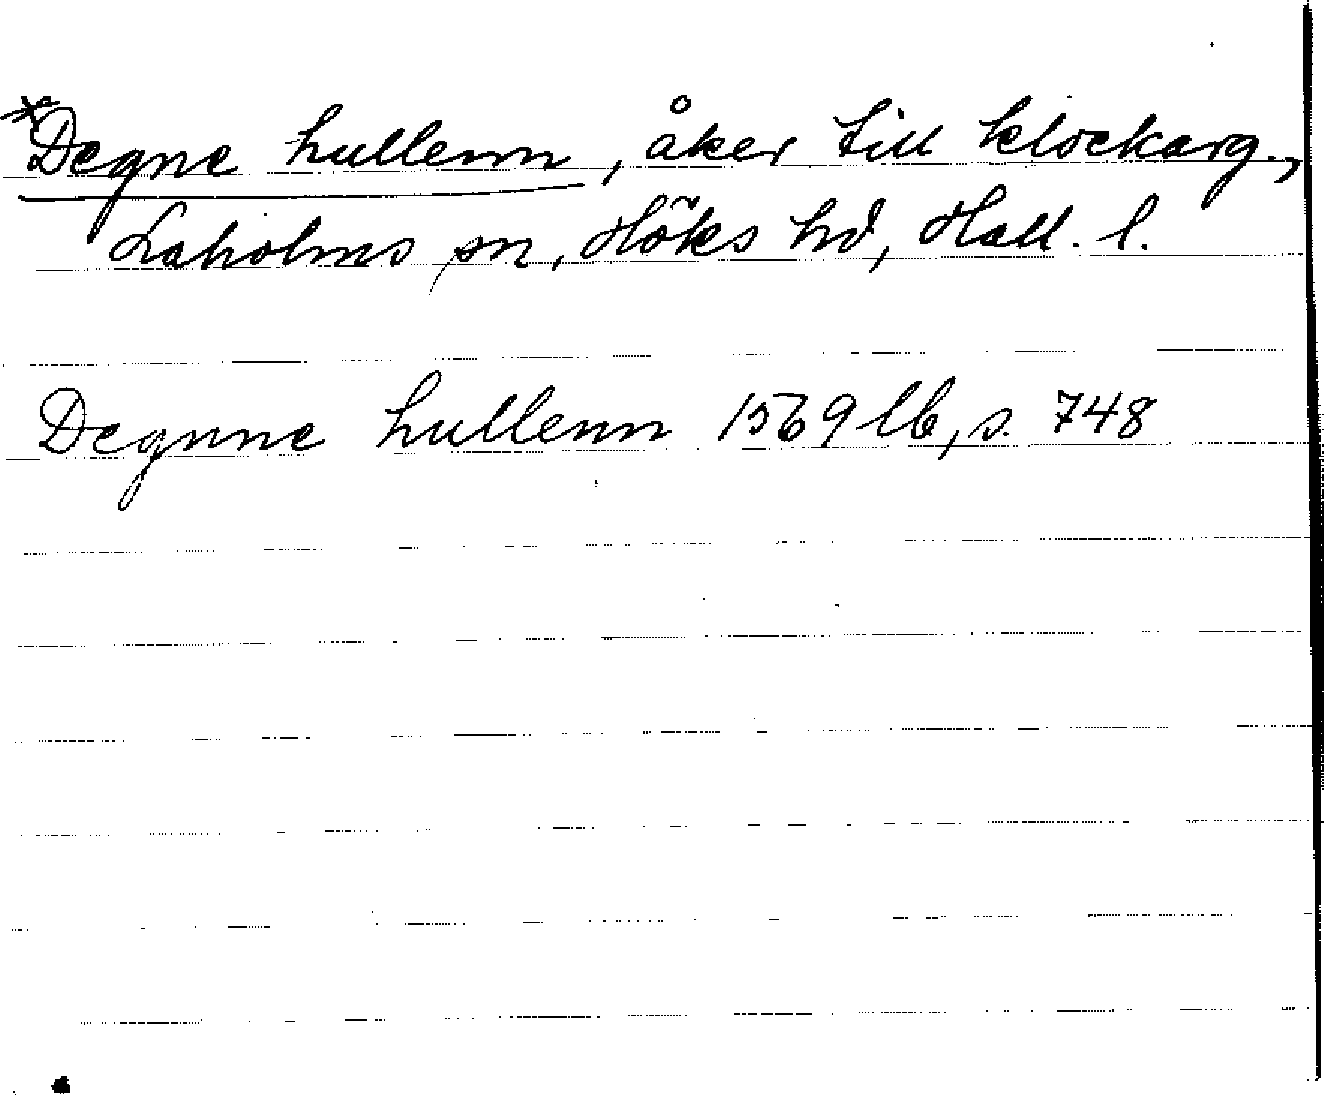 *Degne hullenn, åker till klockarg.,
Laholms sn, Höks hd, Hall. l.
Degnne hullenn 1569 lb, s. 748